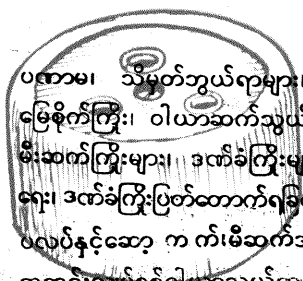 ပဏာမ၊ သိမှတ်ဘွယ်ရာများ၊
မြေစိုက်ကြိုး၊ ဝါယာဆက်သွယ်
မီးဆက်ကြိုးများ၊ ဒဏ်ခံကြိုးမျ
ရေး၊ ဒဏ်ခံကြိုးပြတ်တောက်ရခြ
ပလပ်နှင့်ဆော့ က က်၊မီဆက်အ